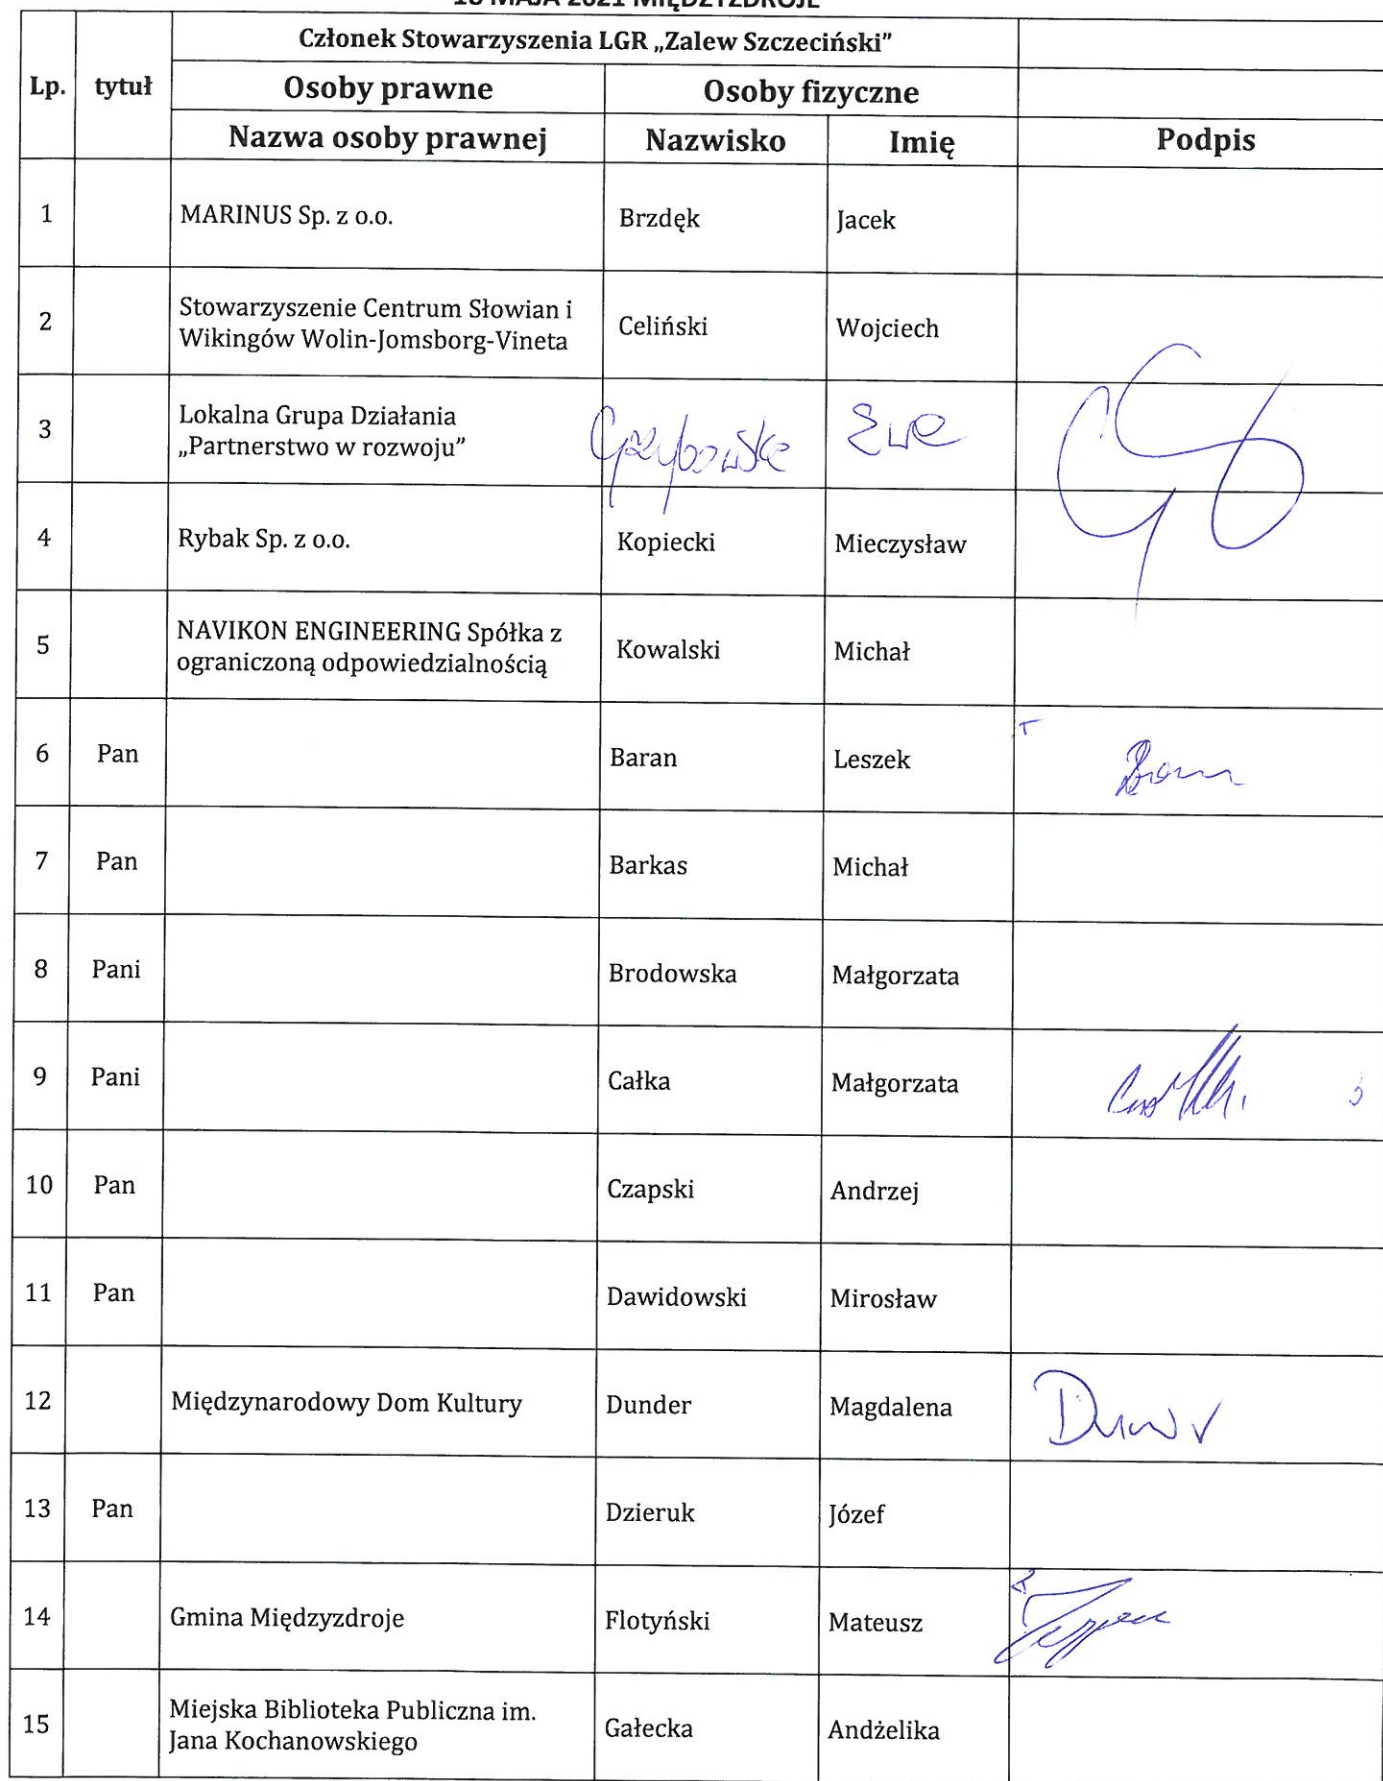 MAJA 2021 MIĘDZYZDROJE
Członek Stowarzyszenia LGR „Zalew Szczeciński”
Lp. tytuł Osoby prawne Osoby fizyczne
Nazwa osoby prawnej Nazwisko Imię Podpis
1 MARINUS Sp. z o.o. Brzdęk Jacek
2 Stowarzyszenie Centrum Słowian i
Wikingów Wolin-Jomsborg-Vineta Celiński Wojciech
3 Lokalna Grupa Działania
„Partnerstwo w rozwoju” Grzybowska Ewa
4 Rybak Sp. z o.o. Kopiecki Mieczysław
5 NAVIKON ENGINEERING Spółka z
ograniczoną odpowiedzialnością Kowalski Michał
6 Pan Baran Leszek
7 Pan Barkas Michał
8 Pani Brodowska Małgorzata
9 Pani Całka Małgorzata
10 Pan Czapski Andrzej
11 Pan Dawidowski Mirosław
12 Międzynarodowy Dom Kultury Dunder Magdalena
13 Pan Dzieruk Józef
14 Gmina Międzyzdroje Flotyński Mateusz
15 Miejska Biblioteka Publiczna im.
Jana Kochanowskiego Gałecka Andżelika